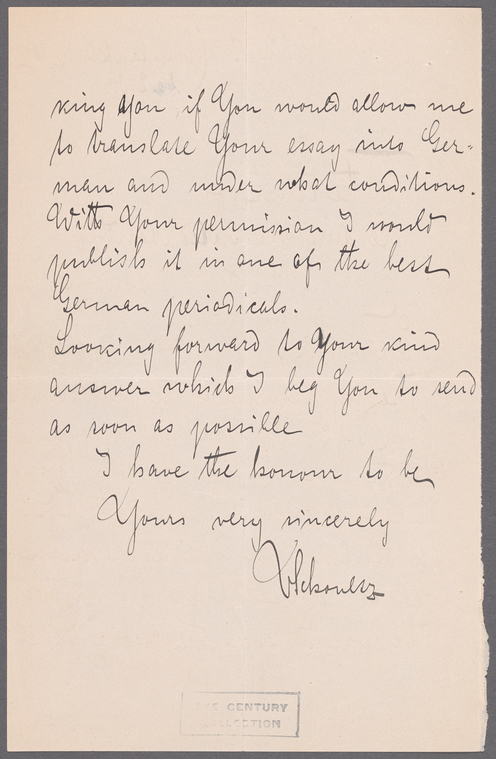 king You if You would allow me
to translate Your essay into Ger=
man and under what conditions.
With Your permission I would
publish it in one of the best
German periodicals.
Looking forward to Your kind
answer which I beg You to send
as soon as possible
I have the honour to be
Yours very sincerely
CENTURY
COLLECTION